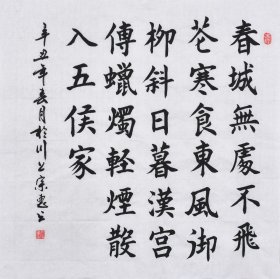 春城無處不飛
花寒食東風御
柳斜日暮漢宮
傳蠟燭輕煙散
入五侯家
辛丑年春月於川